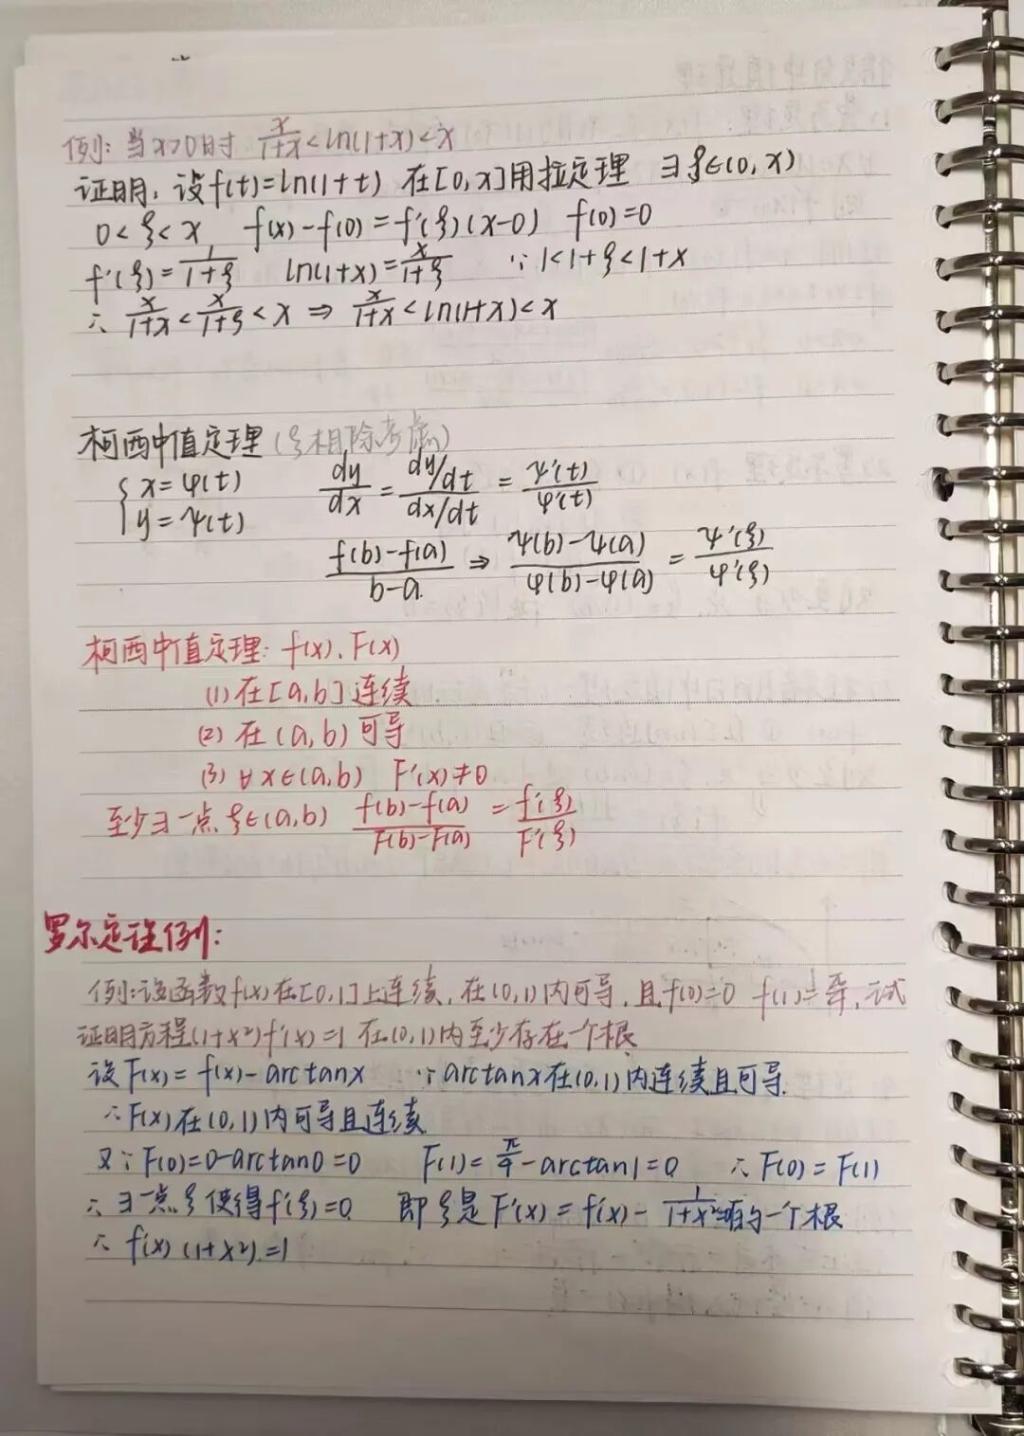 例: 当x>0时 x/(1+x)<ln(1+x)<x
证明: 设f(t)=ln(1+t) 在[0,x]用拉定理 ∃ξ∈(0,x)
0<ξ<x f(x)-f(0)=f'(ξ)(x-0) f(0)=0
f'(ξ)=1/(1+ξ) ln(1+x)=x/(1+ξ) ∵1<1+ξ<1+x
∴ x/(1+x)<x/(1+ξ)<x ⇒ x/(1+x)<ln(1+x)<x
柯西中值定理(ξ相除考虑)
{x=φ(t) dy/dx=(dy/dt)/(dx/dt)=ψ'(t)/φ'(t)
{y=ψ(t)
(f(b)-f(a))/(b-a) ⇒ (ψ(b)-ψ(a))/(φ(b)-φ(a))=ψ'(ξ)/φ'(ξ)
柯西中值定理: f(x).F(x)
(1)在[a,b]连续
(2)在(a,b)可导
(3)∀x∈(a,b) F'(x)≠0
至少∃一点ξ∈(a,b) (f(b)-f(a))/(F(b)-F(a))=f'(ξ)/F'(ξ)
罗尔定理例:
例:设函数f(x)在[0,1]上连续,在(0,1)内可导,且f(0)=0 f(1)=π/4,试
证明方程(1+x²)f'(x)=1 在(0,1)内至少存在一个根
设F(x)=f(x)-arctanx ∵arctanx在(0,1)内连续且可导.
∴F(x)在(0,1)内可导且连续
又∵F(0)=0-arctan0=0 F(1)=π/4-arctan1=0 ∴F(0)=F(1)
∴∃一点ξ使得f'(ξ)=0 即ξ是F'(x)=f'(x)-1/(1+x²)的一个根
∴f'(x)(1+x²)=1